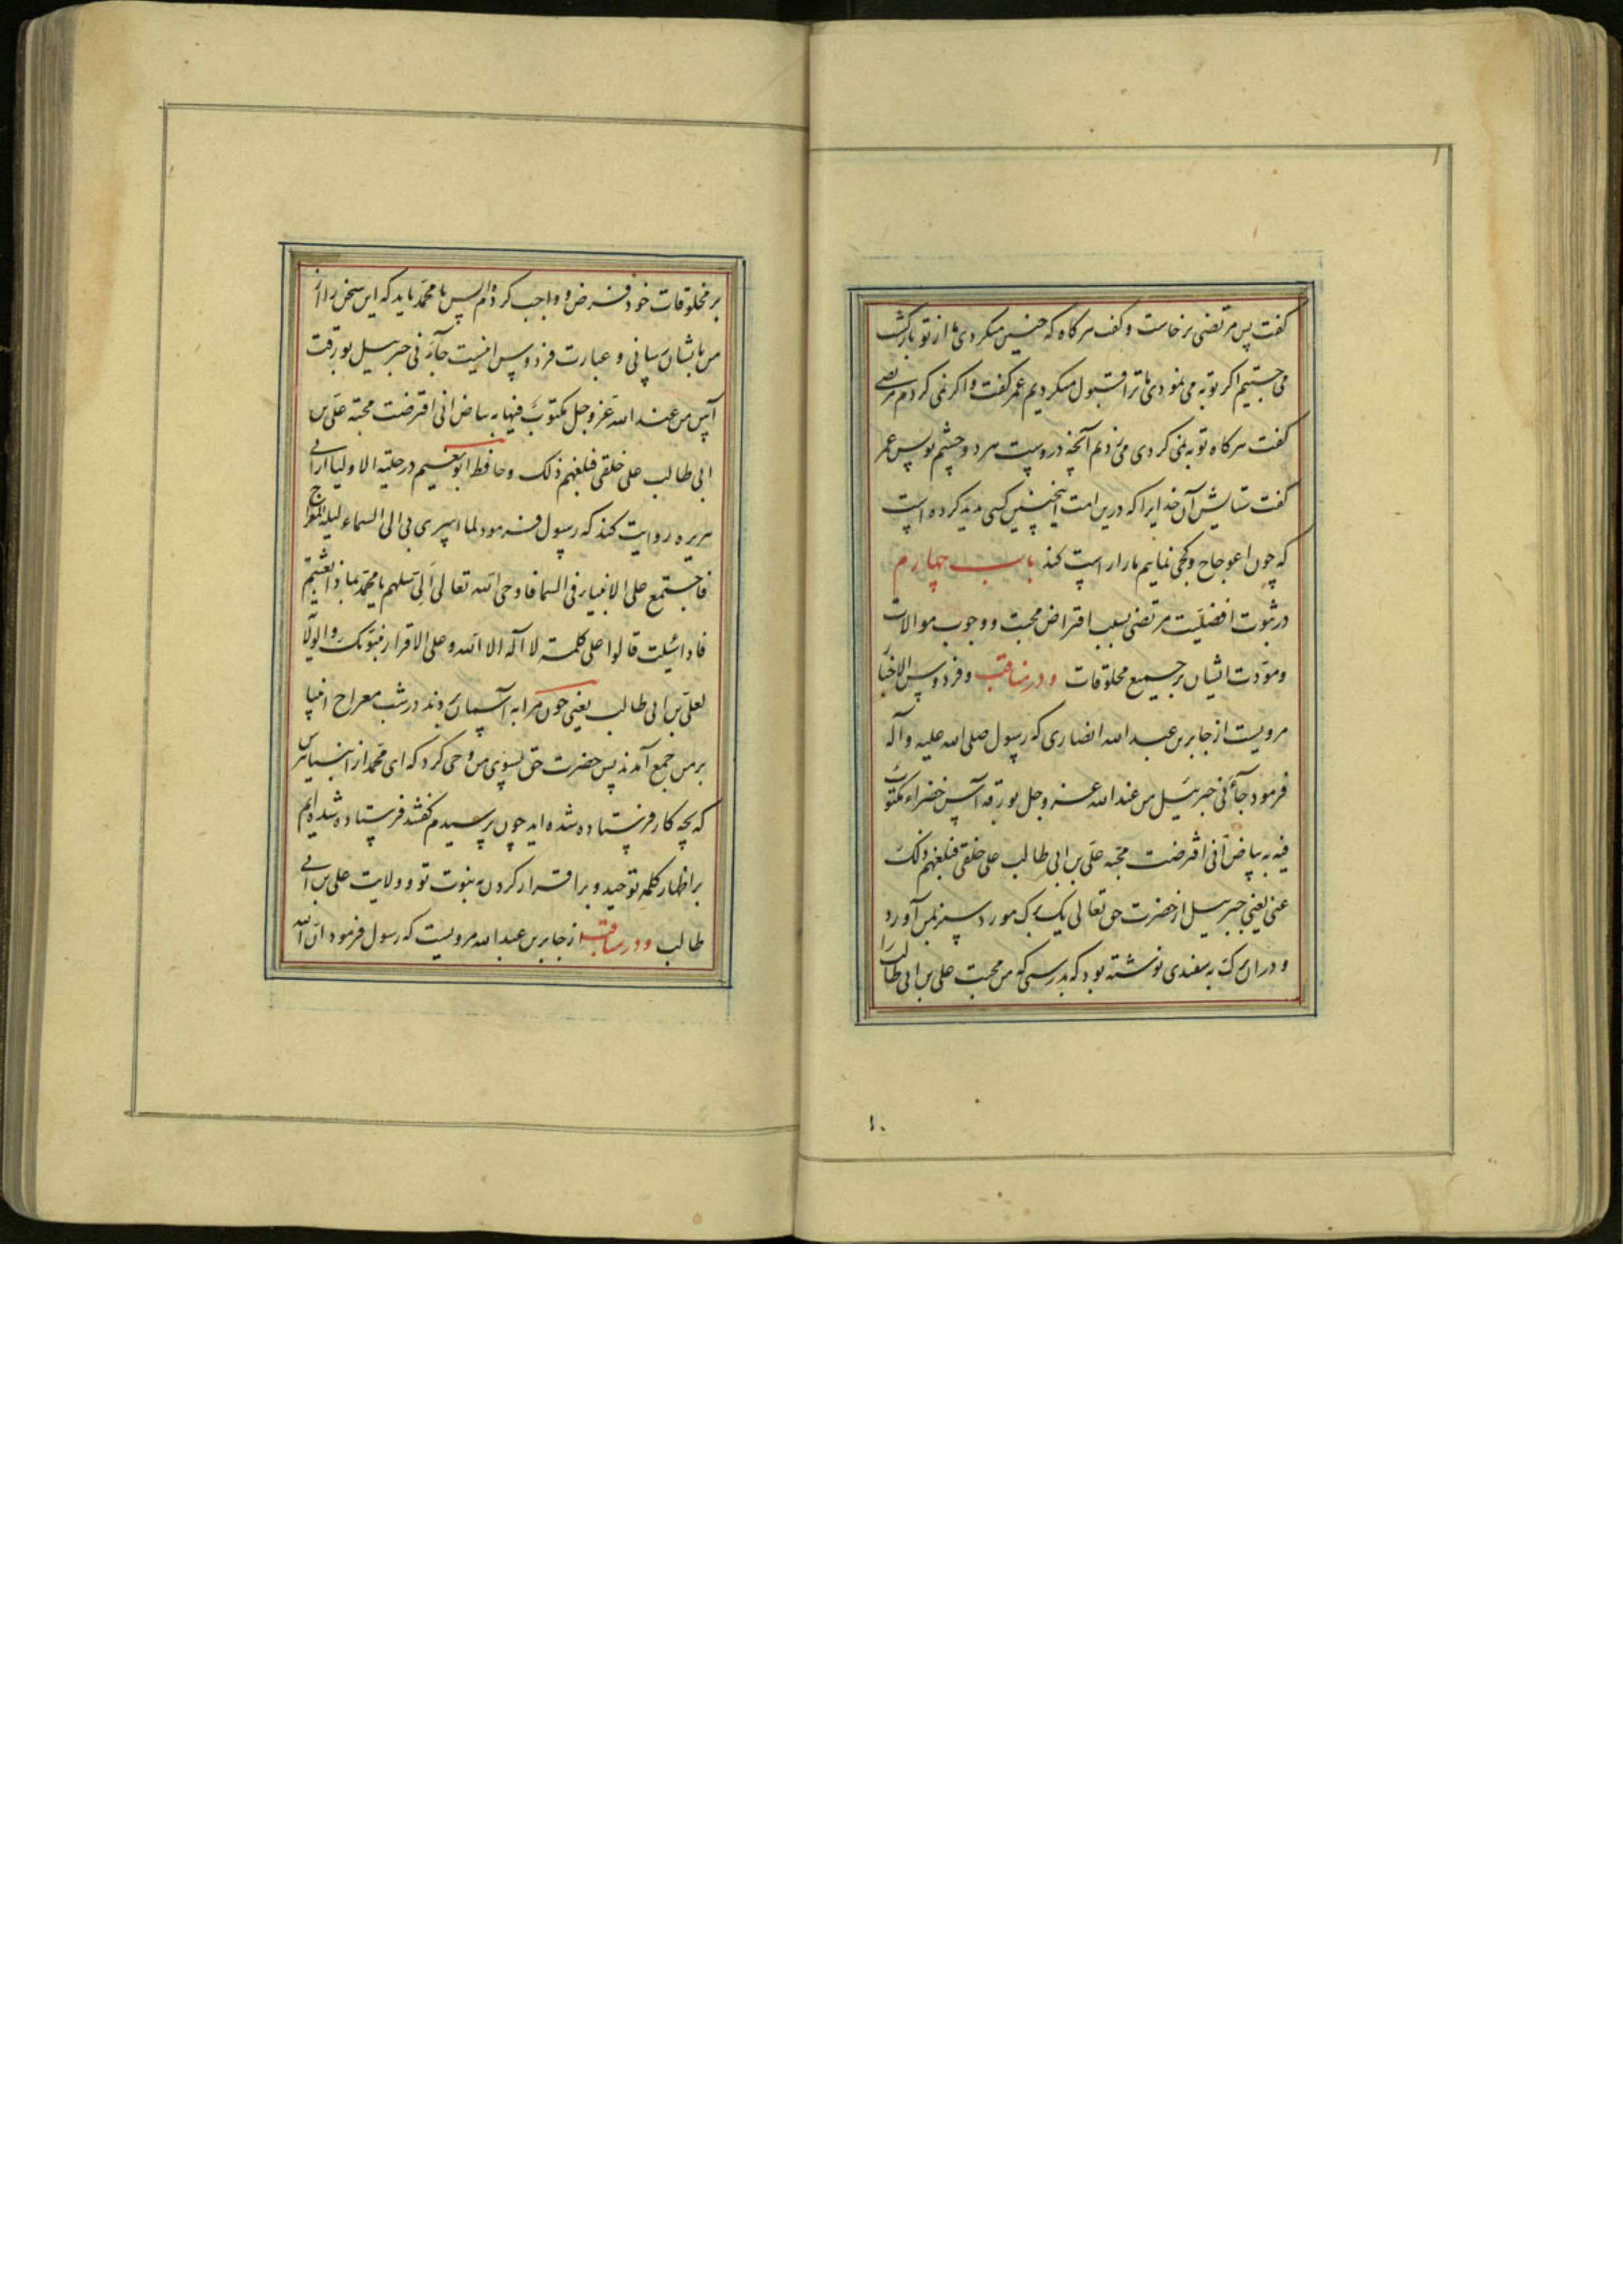 گفت پس مرتضی برخاست و گفت هرگاه که چنین میکردی ما از تو بازگشت
می جستیم اگر توبه می نمودی ما ترا قبول میکردیم عمر گفت و اگر نمی کردم مرتضی
گفت هرگاه توبه نمی کردی می زدم آنچه دروست هر دو چشم تو پس عمر
گفت ستایش آن خدایرا که درین امت اینچنین کسی پدید کرده است
که چون اعوجاج و کجی نمایم ما را راست کند باب چهارم
در ثبوت افضلیت مرتضی بسبب افتراض محبت و وجوب موالات
و مودت ایشان بر جمیع مخلوقات و در مناقب و فردوس الاخبار
مرویست از جابر بن عبد الله انصاری که رسول صلی الله علیه و آله
فرمود جآءنی جبرئیل من عند الله عز و جل بورقه آس خضراء مکتوب
فیه ببیاض انی افترضت محبه علی بن ابی طالب علی خلقی فبلغهم ذلک
عنی یعنی جبرئیل از حضرت حق تعالی یک برک مورد سبز بمن آورد
و در ان برک به سفیدی نوشته بود که بدرستی که من محبت علی بن ابی طالب را
۱۰
بر مخلوقات خود فرض و واجب کرده ام پس یا محمد باید که این سخن را از
من بایشان رسانی و عبارت فردوس اینست جآءنی جبرئیل بورقت
آس من عند الله عز و جل مکتوب فیها ببیاض انی افترضت محبة علی بن
ابی طالب علی خلقی فبلغهم ذلک و حافظ ابو نعیم در حلیة الاولیا از ابی
هریره روایت کند که رسول فرمود لما اسری بی الی السماء لیله المعراج
فاجتمع علی الانبیاء فی السما فاوحی الله تعالی الی سلهم یا محمد بماذا بعثتم
قالوا علی کلمة لا اله الا الله و علی الاقرار بنبوتک و الولایة
لعلی بن ابی طالب یعنی چون مرا به آسمان بردند در شب معراج انبیا
بر من جمع آمدند پس حضرت حق بسوی من وحی کرد که ای محمد از انبیا بپرس
که بچه کار فرستاده شده اید چون پرسیدم گفتند فرستاده شده ایم
بر اظهار کلمه توحید و بر اقرار کردن به نبوت تو و ولایت علی بن ابی
طالب و در مناقب از جابر بن عبد الله مرویست که رسول فرمود ان الله